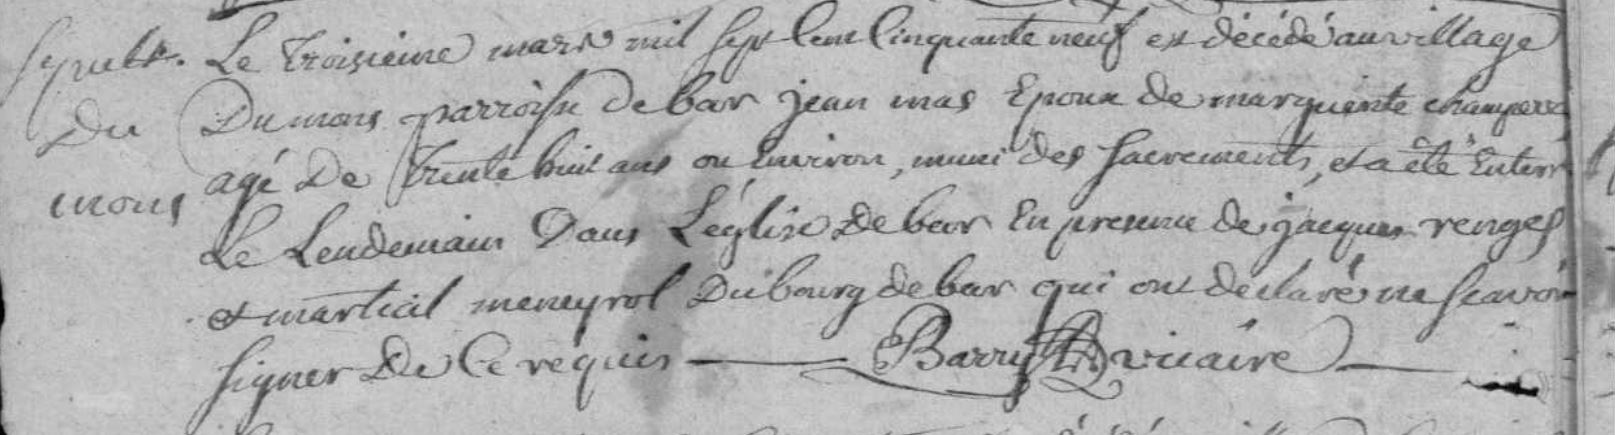 sepult. Le troisieme mars mil sept cent cinquante neuf est décédé au village
Du Dumons parroisse de bar jean mas Epoux de marguerite champeix
mons agé De trente huit ans ou Environ, muni des sacrements, et a été Enterré
Le Lendemain Dans L'église De bar En presence de jacques renges
et martial meneyrol Du bourg de bar qui ont declaré ne scavoir
signer De Ce requis Barry vicaire